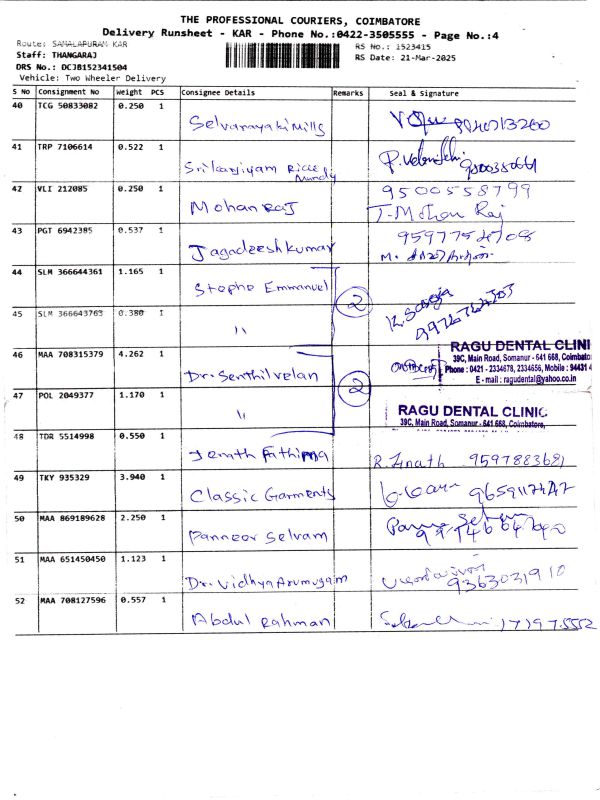 THE PROFESSIONAL COURIERS, COIMBATORE
Delivery Runsheet - KAR - Phone No.:0422-3505555 - Page No.:4
Route: SAMALAPURAM KAR
RS No.: 1523415
Staff: THANGARAJ
RS Date: 21-Mar-2025
DRS No.: DCJB152341504
Vehicle: Two Wheeler Delivery
S No Consignment No Weight PCS Consignee Details Remarks Seal & Signature
40 TCG 50833082 0.250 1
Selvanayaki Mills
41 TRP 7106614 0.522 1
Mundy
42 VLI 212085 0.250 1 9500558799
Mohan Raj T. Mohan Raj
43 PGT 6942385 0.537 1 9597754708
Jagadeesh kumar
44 SLM 366644361 1.165 1
Stephe Emmanuel 2
45 SLM 366643763 0.380 1
"
46 MAA 708315379 4.262 1 RAGU DENTAL CLINI
39C, Main Road, Somanur - 641 668, Coimbato
Dr. Senthil velan 2 Phone : 0421 - 2334678, 2334656, Mobile : 94431 4
E - mail : ragudental@yahoo.co.in
47 POL 2049377 1.170 1
" RAGU DENTAL CLINIC
39C, Main Road, Somanur - 641 668, Coimbatore,
48 TDR 5514998 0.550 1
Fathima R. 9597883681
49 TKY 935329 3.940 1
Classic Garments
50 MAA 869189628 2.250 1
Panneer Selvam
51 MAA 651450450 1.123 1
Dr. Vidhya Arumugam 9363031910
52 MAA 708127596 0.557 1
Abdul Rahman